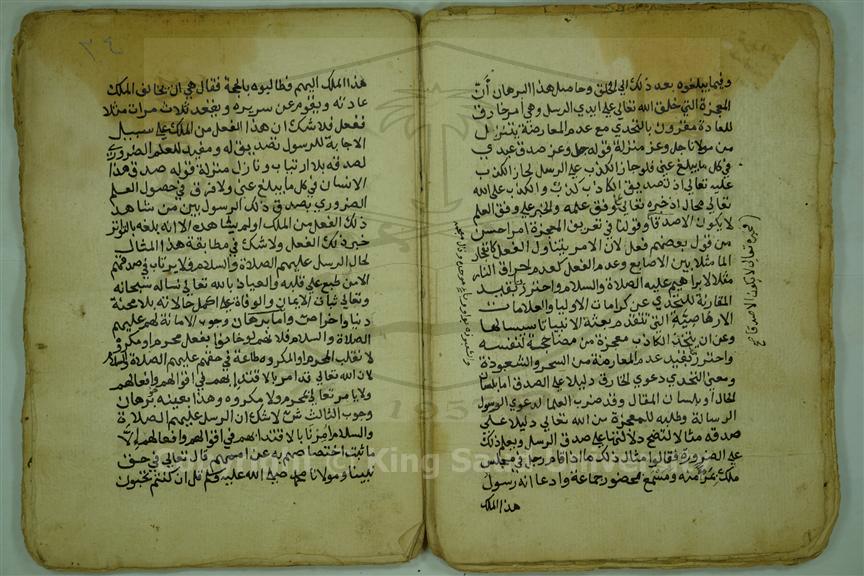 وفيما يبلغوه بعد ذلك الى الخلق وحاصل هذا البرهان أن
المعجزة التي خلق الله تعالى على ايدي الرسل وهي أمر خارق
للعادة مقرون بالتحدي مع عدم المعارضة يتنزل
من مولانا جل وعز منزلة قوله جل وعز صدق عبدي
في كل ما يبلغ عني فلو جاز الكذب على الرسل لجاز الكذب
عليه تعالى اذ تصديق الكاذب كذب والكذب على الله
تعالى محال اذ خبره تعالى على وفق علمه والخبر على وفق العلم
لا يكون الا صدقا وقولنا في تعريف المعجزة امر احسن
من قول بعضهم فعل لان الامر يتناول الفعل كانفجار
الماء مثلا بين الاصابع وعدم الفعل كعدم احراق النار
مثلا لابراهيم عليه الصلاة والسلام واحترز بقيد
المقارنة للتحدي عن كرامات الاوليا والعلامات
الارهاصية التي تتقدم بعثة الانبيا تاسيسا لها
وعن ان يتخذ الكاذب معجزة من مضى حجة لنفسه
واحترز بقيد عدم المعارضة من السحر والشعوذة
ومعنى التحدي دعوى الخارق دليلا على الصدق اما بلسان
الحال او بلسان المقال وقد ضرب العلما لدعوى الرسول
الرسالة وطلبه للمعجزة من الله تعالى دليلا على
صدقه مثالا لتتضح دلالتها على صدق الرسل ويعلم ذلك
على الضرورة فقالوا مثال ذلك ما اذا قام رجل في مجلس
ملك بمرءا منه ومسمع بحضور جماعة وادعا انه رسول
هذا الملك
هذا الملك اليهم فطالبوه بالحجة فقال هي ان يخالف الملك
عادته ويقوم عن سريره ويقعد ثلاث مرات مثلا
ففعل فلا شك ان هذا الفعل من الملك على سبيل
الاجابة للرسول تصديق له ومفيد للعلم الضروري
لصدقه بلا ارتياب ونازل منزلة قوله صدق هذا
الانسان في كل ما يبلغ عني ولا فرق في حصول العلم
الضروري بصدق ذلك الرسول بين من شاهد
ذلك الفعل من الملك او لم يشاهده الا انه بلغه بالتواتر
خبر ذلك الفعل ولا شك في مطابقة هذا المثال
لحال الرسل عليهم الصلاة والسلام ولا يرتاب في صدقهم
الا من طبع على قلبه والعياذ بالله تعالى نساله سبحانه
وتعالى ثبات الايمان والوفاة على اكمل حالاته بلا محنة
دنيا واخرى واما برهان وجوب الامانة لهم عليهم
الصلاة والسلام فلانهم لو خانوا بفعل محرم او مكروه
لانقلب المحرم او المكروه طاعة في حقهم عليهم الصلاة والسلام
لان الله تعالى قد امر بالاقتدا بهم في اقوالهم وافعالهم
ولا يامر تعالى بمحرم ولا مكروه وهذا بعينه برهان
وجوب الثالث لا شك ان الرسل عليهم الصلاة
والسلام امرنا بالاقتدا بهم في اقوالهم وافعالهم الا
ما ثبت اختصاصهم به عن اممهم قال تعالى في حق
نبينا ومولانا محمد صلى الله عليه وسلم قل ان كنتم تحبون
٣٤
King Saud University
1957